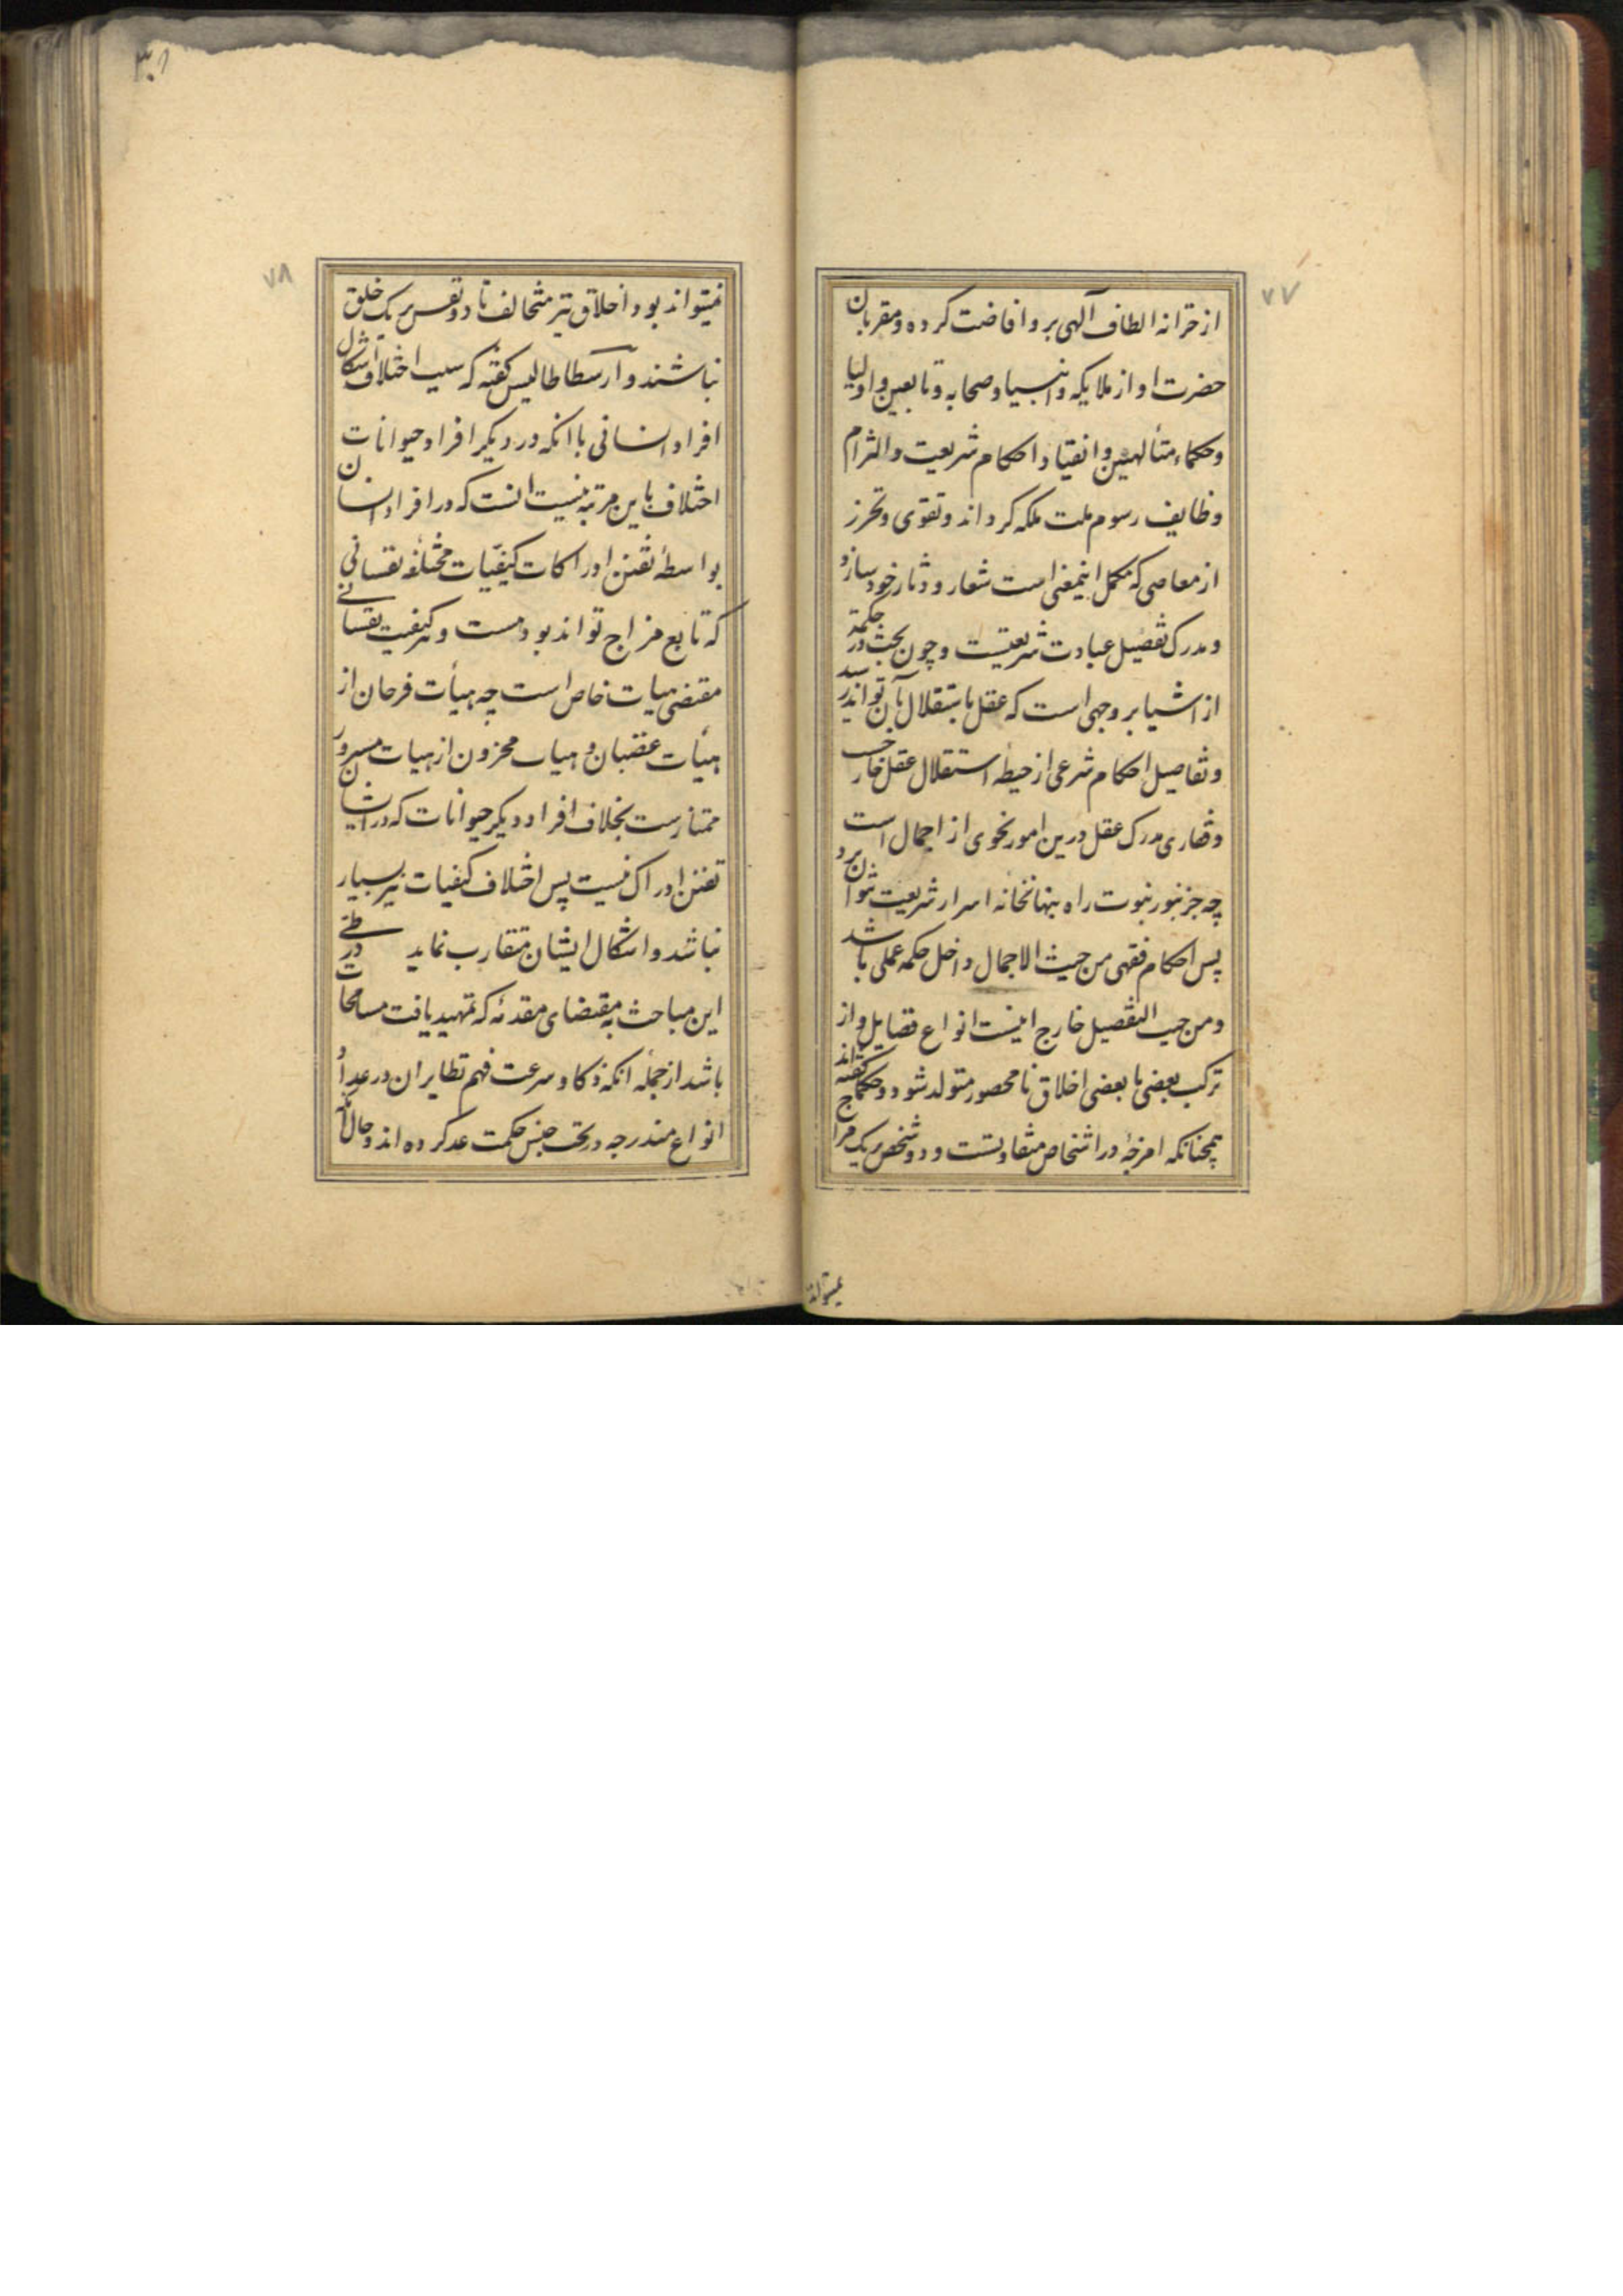 ۷۷
از خزانه الطاف آلهی برو افاضت کرده و مقربان
حضرت او از ملایکه و انبیا و صحابه و تابعین و اولیا
و حکماء متألهین و انقیاد احکام شریعت و التزام
وظایف رسوم ملت ملکه کرداند و تقوی و تحرز
از معاصی که مکمل اینمعنی است شعار و دثار خود سازد
و مدرک تفصیل عبادت شریعتیست و چون بحث در حکمة
از اشیا بر وجهی است که عقل باستقلال بآن تواند رسید
و تفاصیل احکام شرعی از حیطه استقلال عقل خارجست
و قصاری مدرک عقل درین امور نحوی از اجمال است
چه جز بنور نبوت راه بنهانخانه اسرار شریعت نتوان برد
پس احکام فقهی من حیث الاجمال داخل حکمه عملی باشد
و من حیث التفصیل خارج اینست انواع فضایل و از
ترکب بعضی با بعضی اخلاق نا محصور متولد شود و حکما کفته اند
همچنانکه امزجۀ در اشخاص متفاوتست و دو شخص بر یک مزاج
نمیتواند
۳۰۸
۷۸
نمیتواند بود اخلاق نیز متخالف تا دو نفس بر یک خلق
نباشند و ارسطاطالیس کفته که سبب اختلاف اشکال
افراد انسانی با انکه در دیکر افراد حیوانات
اختلاف باین مرتبه نیست انست که در افراد انسان
بواسطۀ تفنن ادراکات کیفیّات مختلفۀ نفسانی
که تابع مزاج تواند بود هست و هر کیفیت نفسانی
مقتضی هیات خاص است چه هیأت فرحان از
هیأت غضبان و هیات محزون از هیات مسرور
ممتازست بخلاف افراد دیکر حیوانات که در ایشان
تفنن ادراک نیست پس اختلاف کیفیات نیز بسیار
نباشد و اشکال ایشان متقارب نماید در طی
این مباحث به مقتضای مقدمۀ که تمهید یافت مسامحات
باشد از جمله انکه ذکا و سرعت فهم نظایر ان در عداد
انواع مندرجه در تحت جنس حکمت عد کرده اند و حال انکه